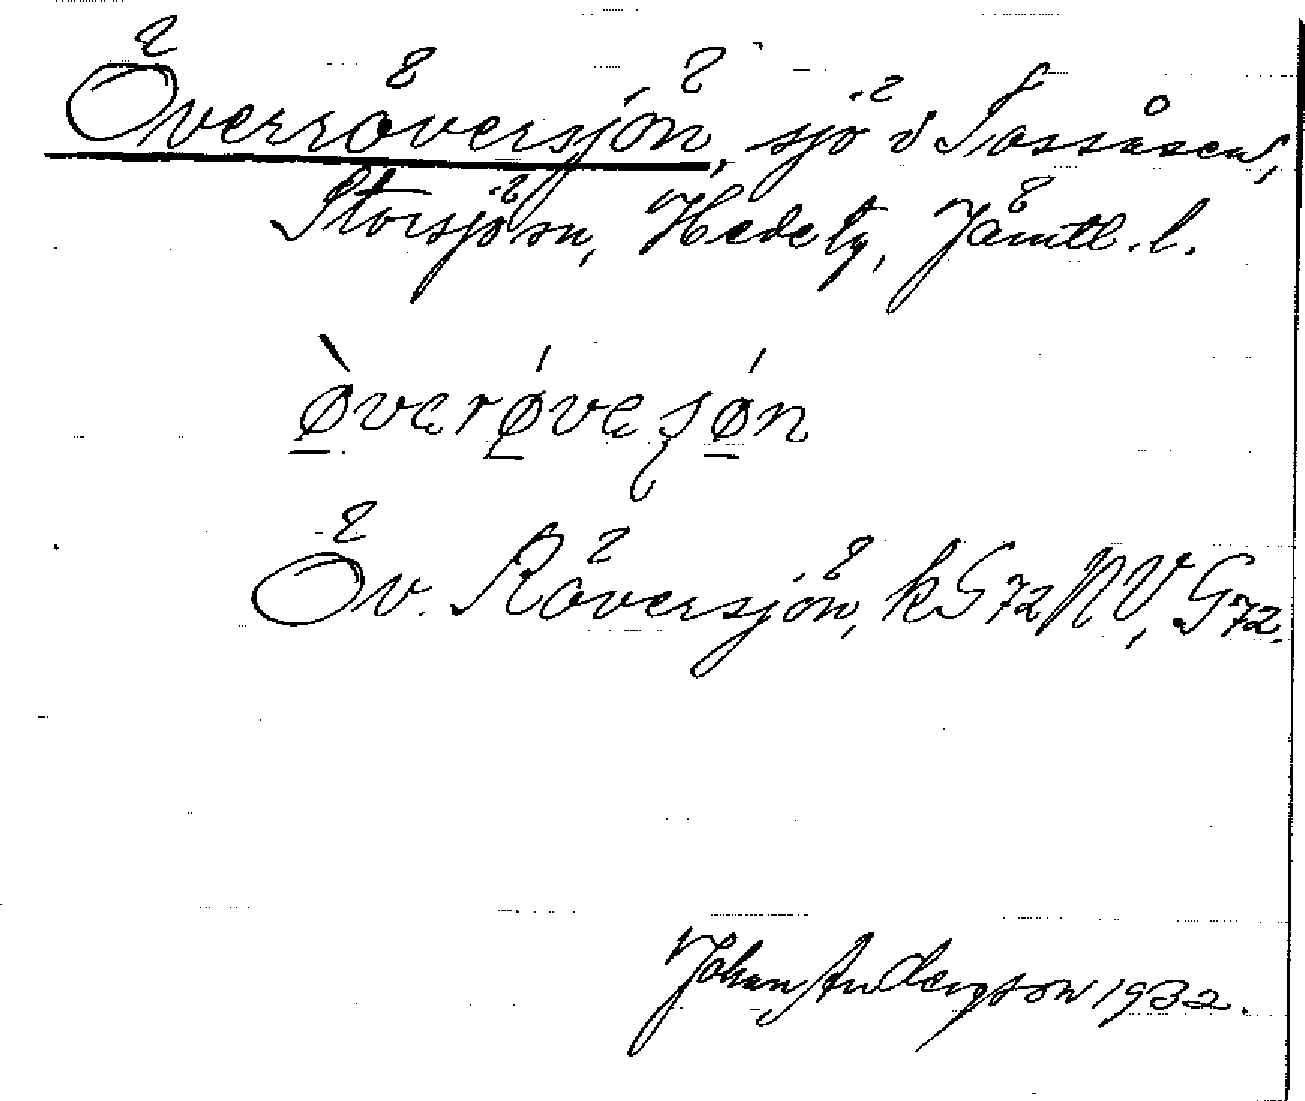 Överröversjön, sjö i Tossåsen,
Storsjön, Hede tg, Jämtl. l.
ø̀verǿvesǿn
Öv. Röversjön, kG72NV, G72.
Johan Andersson 1932.